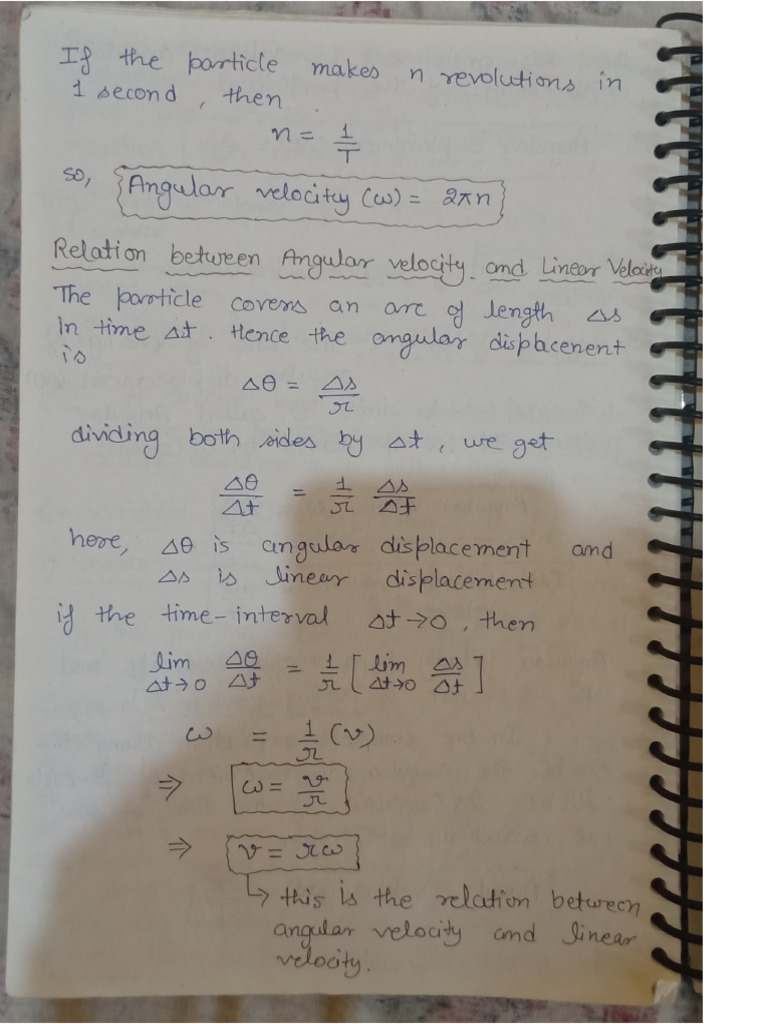 If the particle makes n revolutions in
1 second, then
n = 1/T
so, Angular velocity (ω) = 2πn
Relation between Angular velocity and Linear Velocity
The particle covers an arc of length Δs
in time Δt. Hence the angular displacement
is
Δθ = Δs/r
dividing both sides by Δt, we get
Δθ/Δt = 1/r Δs/Δt
here, Δθ is angular displacement and
Δs is linear displacement
if the time-interval Δt→0, then
lim Δt→0 Δθ/Δt = 1/r [lim Δt→0 Δs/Δt]
ω = 1/r (v)
⇒ ω = v/r
⇒ v = rω
↳ this is the relation between
angular velocity and linear
velocity.